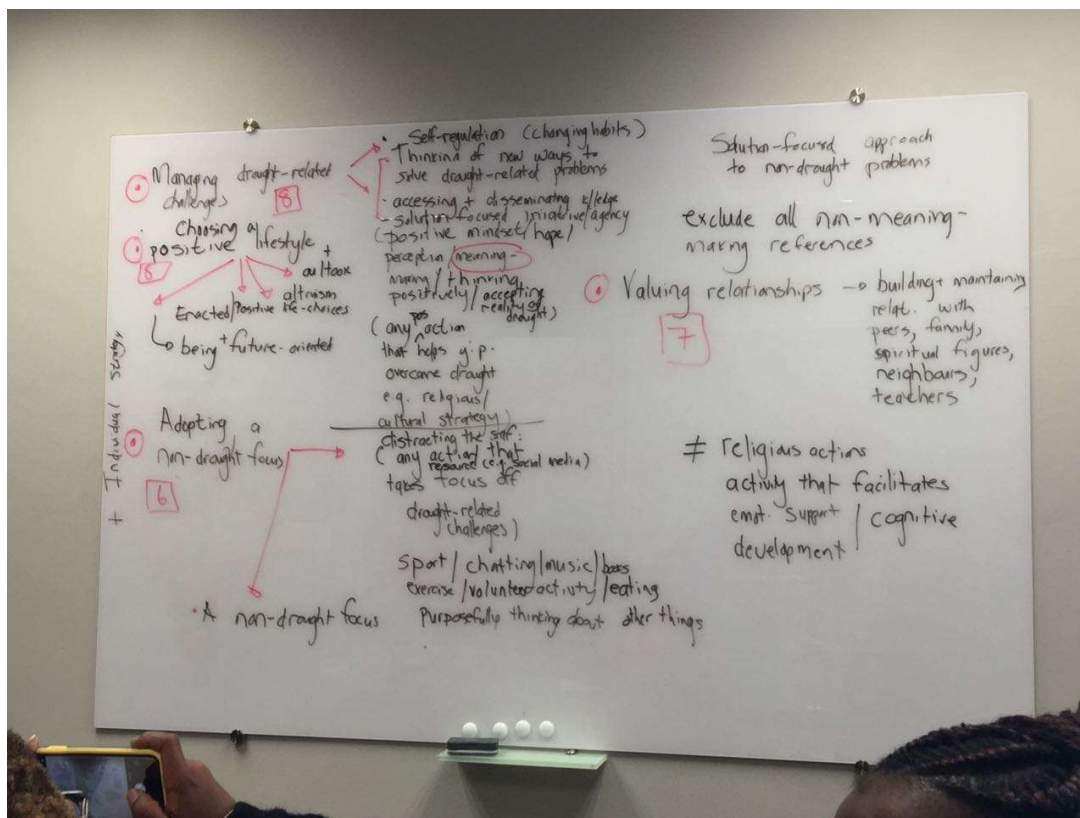 Managing draught-related
challenges
8
Choosing a lifestyle
positive
+
outlook
altruism
Enacted/Positive life-choices
being + future-oriented
Adopting a
non-draught focus
6
+ Individual Strategy
A non-draught focus
Self-regulation (changing habits)
Thinking of new ways to
solve draught-related problems
- accessing + disseminating k/ledge
- solution-focused, iniative/agency
(positive mindset/hope/
perception/meaning-
making/thinking
positively/accepting
reality of
draught)
pos
(any action
that helps y.p.
overcome draught
e.g. religious/
cultural strategy)
distracting the self:
(any action that
resource (e.g. social media)
takes focus off
draught-related
challenges)
sport/chatting/music/books
exercise/volunteer activity/eating
Purposefully thinking about other things
Solution-focused approach
to non-draught problems
exclude all non-meaning-
making references
Valuing relationships → building + maintaining
relat. with
peers, family,
spiritual figures,
neighbours,
teachers
7
≠ religious actions
activity that facilitates
emot. support / cognitive
development